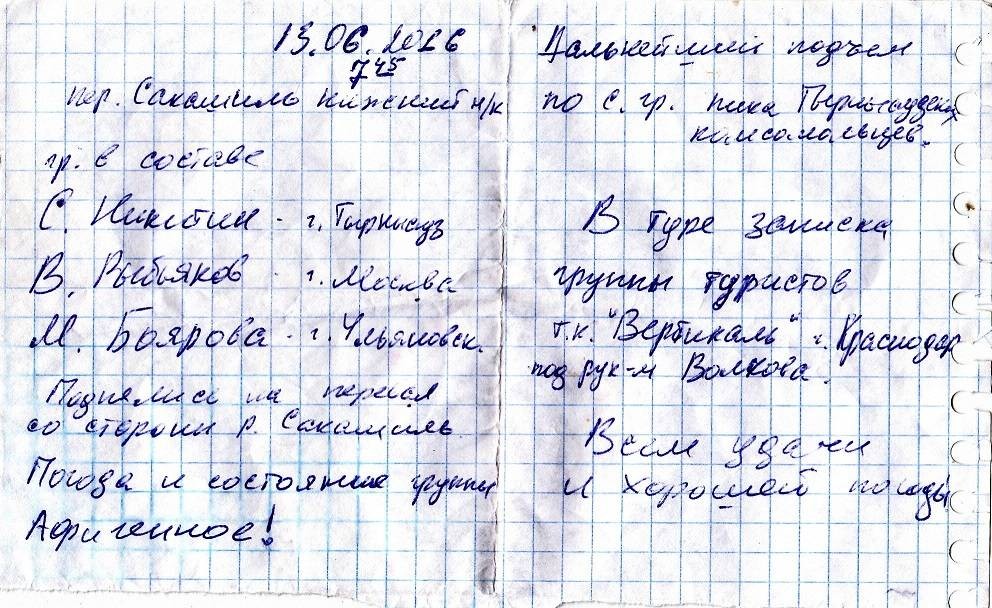 13.06.2026
7 45
пер. Сакашиль нижний н/к
гр. в составе
С. Никитин - г. Тырныауз
В. Выбьяков - г. Москва
М. Боярова - г. Ульяновск.
Поднялись на перевал
со стороны р. Сакашиль
Погода и состояние группы
Афигенное!
Дальнейший подъем
по с. гр. пика Тырныаузских
комсомольцев.
В туре записка
группы туристов
т.к. "Вертикаль" г. Краснодар
под рук-м Волкова.
Всем удачи
и хорошей погоды